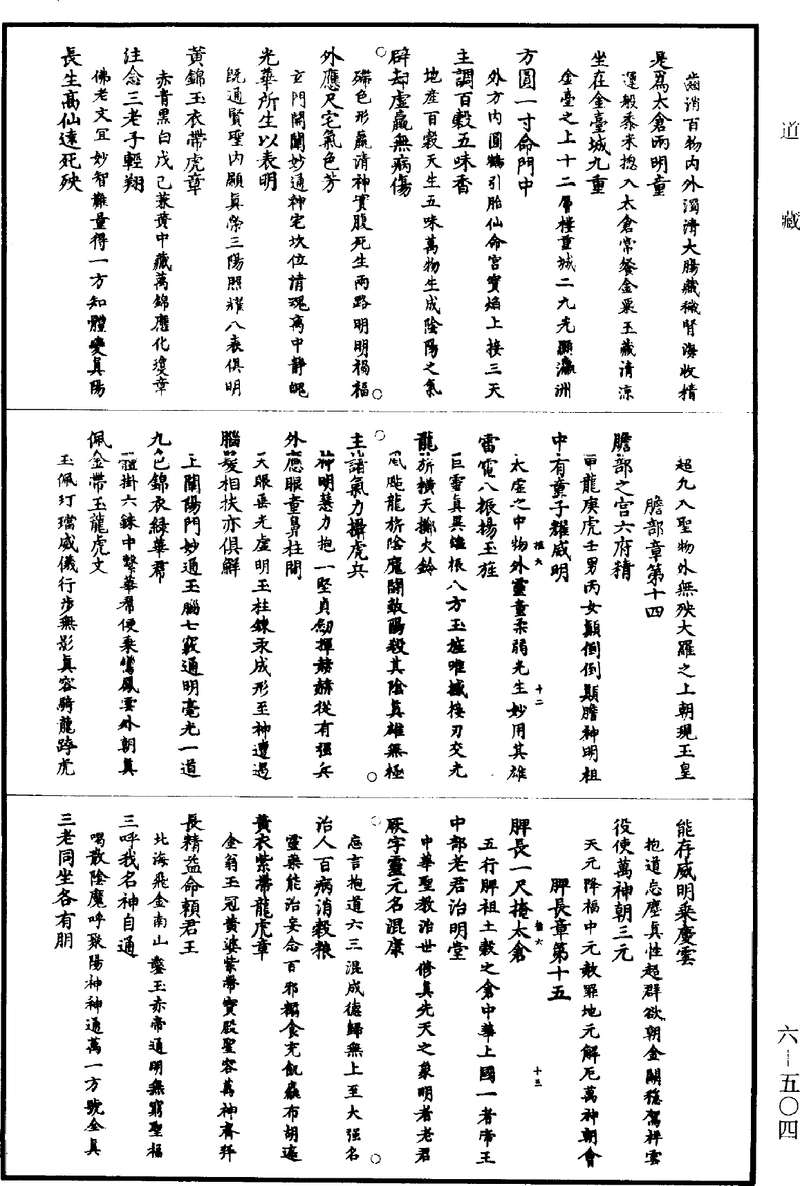 道藏
齒消百物內外濁清大腸藏穢腎海收精
是為太倉兩明童
運般黍米捴入太倉常餐金粟玉藏清涼
坐在金臺城九重
金臺之上十二層樓重城二九光顯瀛洲
方圓一寸命門中
外方內圓鶴引胎仙命宮寶焰上接三天
主調百穀五味香
地產百穀天生五味萬物生成陰陽之氣
辟却虛羸無病傷
瑞色形羸清神實腹死生兩路明明禍福
外應尺宅氣色芳
玄門開闡妙通神宅坎位清魂离中靜魄
光華所生以表明
既通賢聖內顯真榮三陽照耀八表俱明
黃錦玉衣帶虎章
赤青黑白戊己兼黃中藏萬錦應化瓊章
注念三老子輕翔
佛老文宣妙智難量得一方知體變真陽
長生高仙遠死殃
超凡入聖物外無殃大羅之上朝現玉皇
膽部章第十四
膽部之宮六府精
甲龍庚虎壬男丙女顛倒倒顛膽神明祖
中有童子耀威明
太虛之中物外靈童柔弱先生妙用其雄
雷電八振揚玉旌
巨靈真異雄振八方玉旌唯撼接刃交光
龍旂橫天擲火鈴
風颭龍旂陰魔鬪敵陽殺其陰真雄無極
主諸氣力攝虎兵
神明慧力抱一堅貞劍揮赫赫從有強兵
外應眼童鼻柱間
天眼垂光虛明玉柱鍊汞成形至神遭遇
腦髮相扶亦俱鮮
上闡陽門妙通玉腦七竅通明毫光一道
九色錦衣綠華裙
體掛六銖中繫華裙便乘鸞鳳雲外朝真
佩金帶玉龍虎文
玉佩玎璫威儀行步無影真容騎龍跨虎
能存威明乘慶雲
抱道忘塵真性超群欲朝金闕穩駕祥雲
役使萬神朝三元
天元降福中元赦罪地元解厄萬神朝會
脾長章第十五
脾長一尺掩太倉
五行脾祖土穀之倉中華上國一者帝王
中部老君治明堂
中華聖教治世修真先天之象明者老君
厥字靈元名混康
忘言抱道六三混成德歸無上至大強名
治人百病消穀粮
靈藥能治妄念百邪糲食充飢麁布胡遮
黃衣紫帶龍虎章
金翁玉冠黃婆紫帶寶殿聖容萬神齊拜
長精益命賴君王
北海飛金南山鑿玉赤帝通明無窮聖福
三呼我名神自通
喝散陰魔呼聚陽神神通萬一方號全真
三老同坐各有朋
六—五〇四